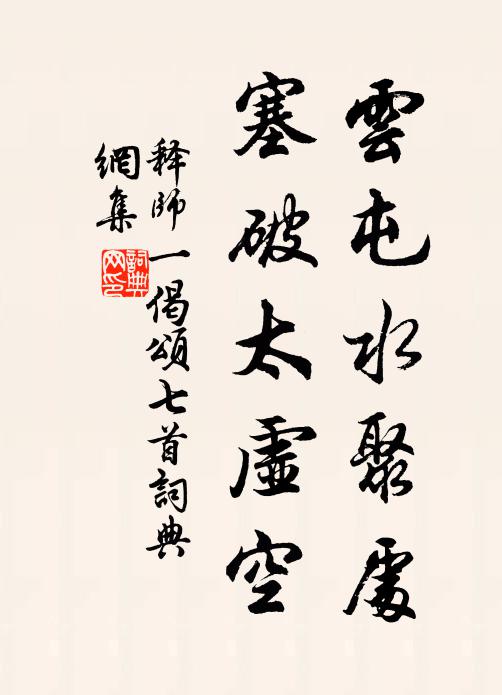 雲屯水聚處
塞破太虛空
释師一偈頌七首詞典
網集
詞典
网印